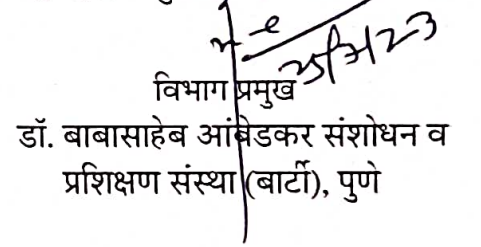 विभाग प्रमुख
डॉ. बाबासाहेब आंबेडकर संशोधन व
प्रशिक्षण संस्था (बार्टी), पुणे